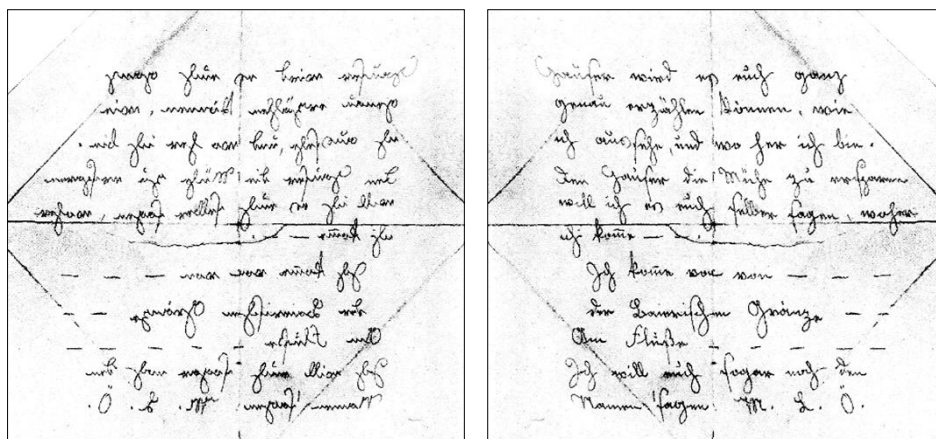 Hauser wird es euch ganz
genau erzählen können, wie
ich aussehe, und wo her ich bin.
Den Hauser die Mühe zu ersparen
will ich es euch selber sagen, woher
ich kom̅e — —
Ich kom̅e von von — — —
der Baierischen Gränze — —
Am Fluße — — — — —
Ich will euch sogar noch den
Namen sagen: M. L. Ö.